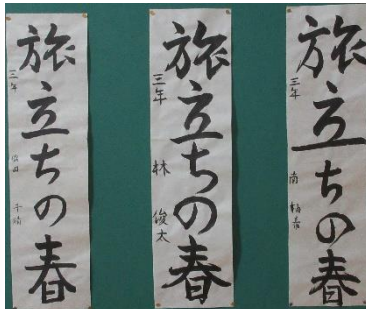 旅立ちの春
三年 南
旅立ちの春
三年 林 俊太
旅立ちの春
三年